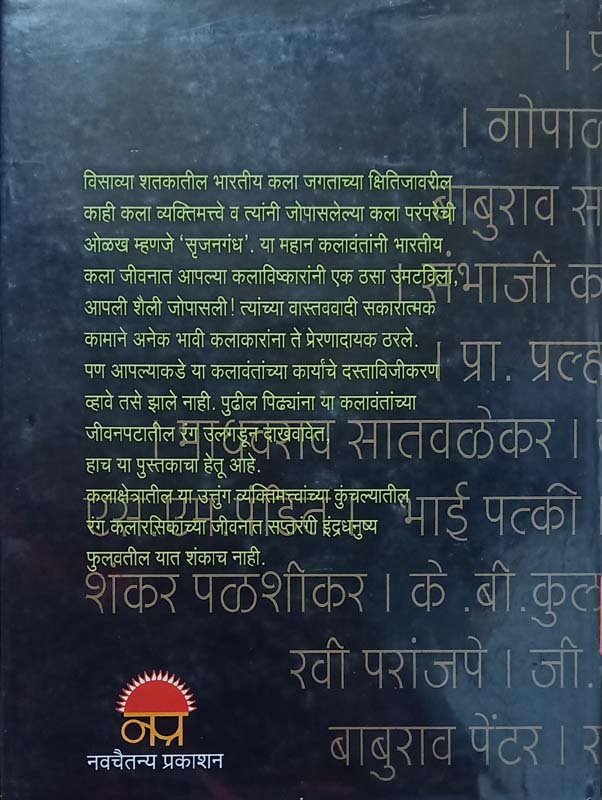 । प्र
। गोपाळ
विसाव्या शतकातील भारतीय कला जगताच्या क्षितिजावरील
काही कला व्यक्तिमत्त्वे व त्यांनी जोपासलेल्या कला परंपरेची
बाबुराव स
ओळख म्हणजे ‘सृजनगंध’. या महान कलावंतांनी भारतीय
कला जीवनात आपल्या कलाविष्कारांनी एक ठसा उमटविला,
। संभाजी क
आपली शैली जोपासली! त्यांच्या वास्तववादी सकारात्मक
कामाने अनेक भावी कलाकारांना ते प्रेरणादायक ठरले.
। प्रा. प्रल्ह
पण आपल्याकडे या कलावंतांच्या कार्यांचे दस्ताविजीकरण
व्हावे तसे झाले नाही. पुढील पिढ्यांना या कलावंतांच्या
जीवनपटातील रंग उलगडून दाखवावेत,
। माधवराव सातवळेकर ।
हाच या पुस्तकाचा हेतू आहे.
कलाक्षेत्रातील या उत्तुंग व्यक्तिमत्त्वांच्या कुंचल्यातील
एस. एम. पंडित । भाई पत्की ।
रंग कलारसिकांच्या जीवनात सप्तरंगी इंद्रधनुष्य
फुलवतील यात शंकाच नाही.
शंकर पळशीकर । के .बी.कुल
रवी परांजपे । जी.
बाबुराव पेंटर । र
नप्र
नवचैतन्य प्रकाशन